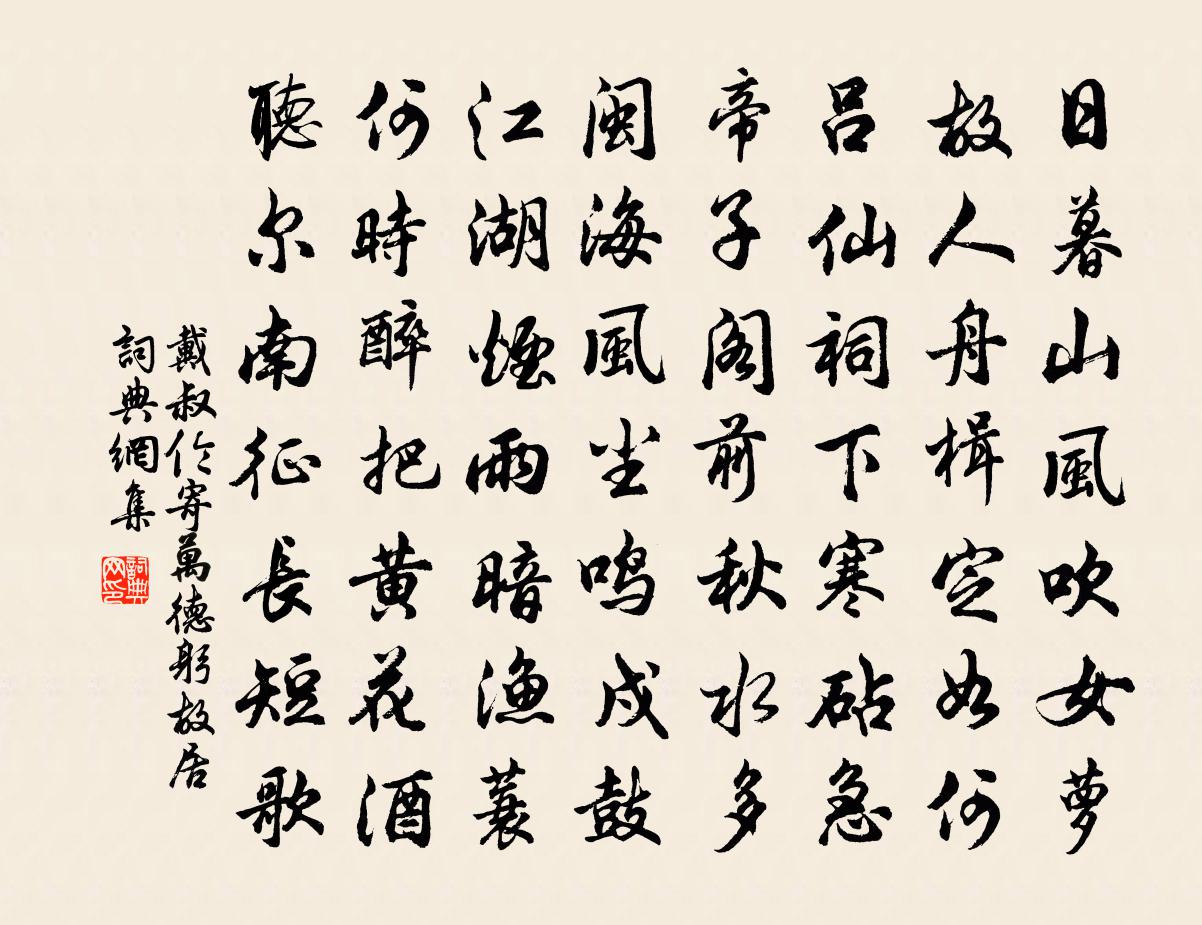 日暮山風吹女萝
故人舟楫定如何
吕仙祠下寒砧急
帝子阁前秋水多
闽海風尘鸣戍鼓
江湖煙雨暗渔蓑
何時醉把黄花酒
聽尔南征長短歌
戴叔伦寄萬德躬故居
詞典網集
詞典网印